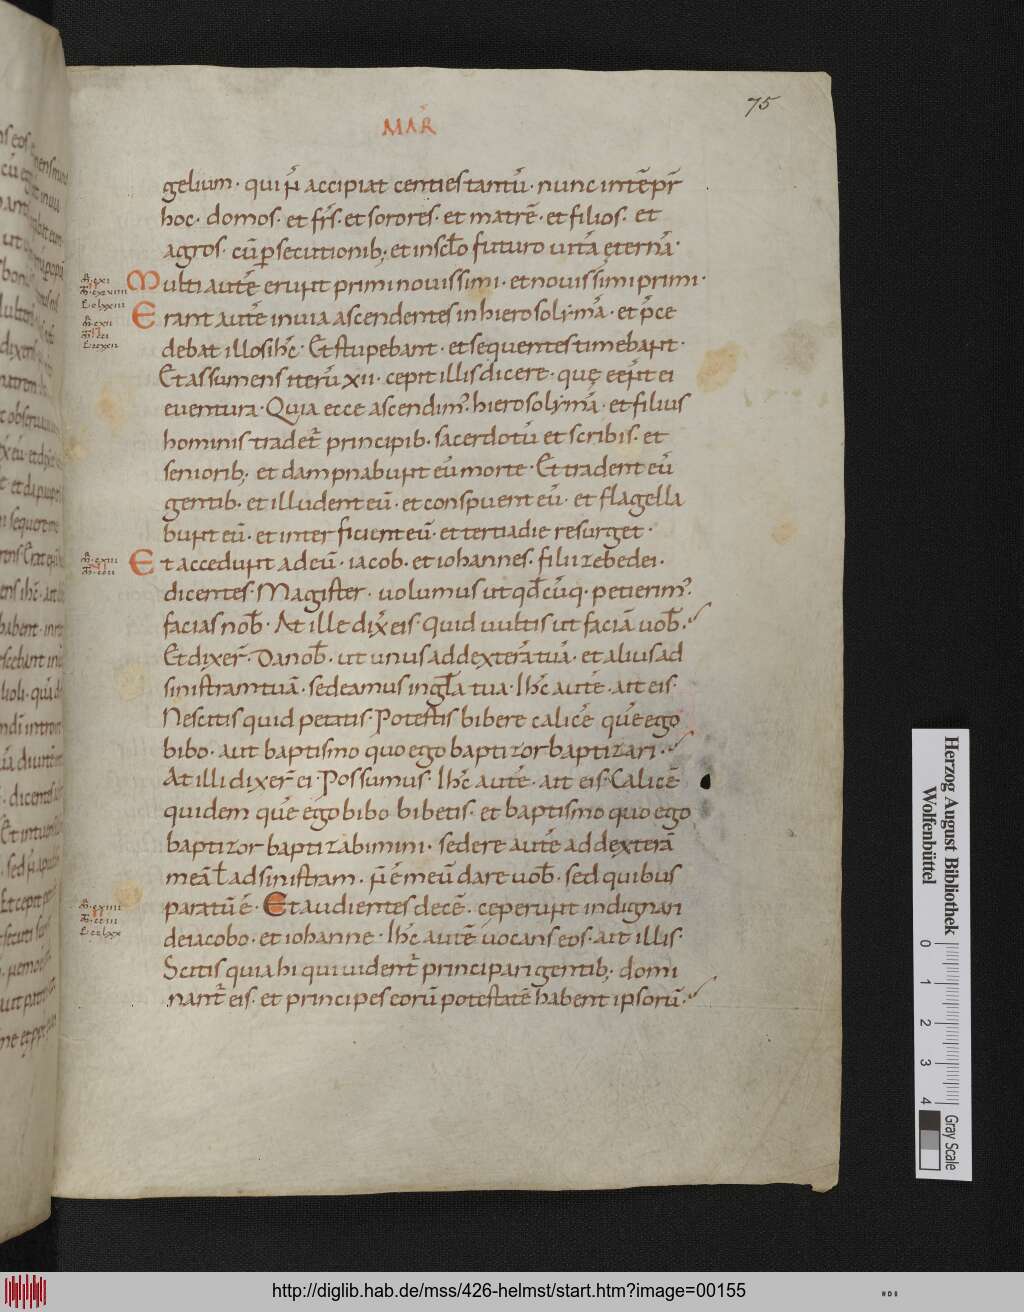 75
MAR̄
gelium· qui n̄ accipiat centies tantū· nunc in tēpr̄
hoc· domos· et fr̄s· et sorores· et matrē· et filios· et
agros· cū persecutionib; et in sc̄lo futuro uitā ęternā·
Multi autē erunt primi nouissimi· et nouissimi primi·
Erant autē in uia ascendentes in hierosolymā· et p̄ce
debat illos ih̄c· Et stupebant· et sequentes timebant·
Et assumens iterū xii· cepit illis dicere· quę eēnt ei
euentura· Quia ecce ascendim' hierosolymā· et filius
hominis tradet̄ principib· sacerdotū et scribis· et
seniorib; et dampnabunt eū morte· Et tradent eū
gentib· et illudent eū· et conspuent eū· et flagella
bunt eū· et interficient eū· et tertia die resurget·
Et accedunt ad eū· iacob· et iohannes· filii zebedei·
dicentes· Magister· uolumus ut qd̄cūq· petierim'
facias nob̄· At ille dix̄ eis· Quid uultis ut faciā uob̄·
Et dixer̄· Da nob̄· ut unus ad dexterā tuā· et alius ad
sinistram tuā· sedeamus in gl̄a tua· Ih̄c autē· ait eis·
Nescitis quid petatis· Potestis bibere calicē quē ego
bibo· aut baptismo quo ego baptizor baptizari·
At illi dixer̄ ei· Possumus· Ih̄c autē· ait eis· Calicē
quidem quē ego bibo bibetis· et baptismo quo ego
baptizor baptizabimini· sedere autē ad dexterā
meā ł ad sinistram· n̄ ē meū dare uob̄· sed quibus
paratū ē· Et audientes decē· ceperunt indignari
de iacobo· et iohanne· Ih̄c autē uocans eos· ait illis·
Scitis quia hi qui uident̄ principari gentib; domi
nant̄ eis· et principes eorū potestatē habent ipsorū·
Herzog August Bibliothek
Wolfenbüttel
0 1 2 3 4
Gray Scale
http://diglib.hab.de/mss/426-helmst/start.htm?image=00155